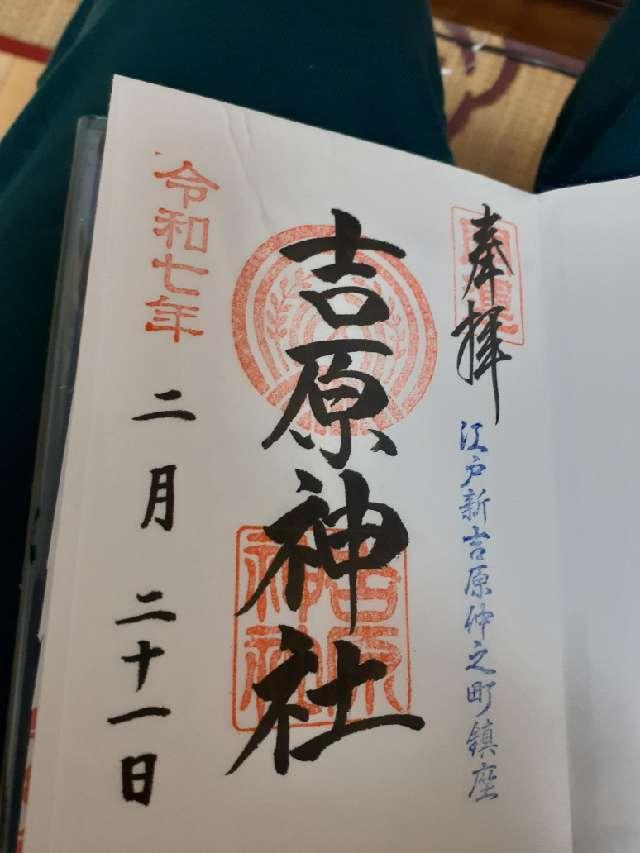 奉拝
江戸新吉原仲之町鎮座
吉原神社
吉原
神社
令和七年
二月二十一日